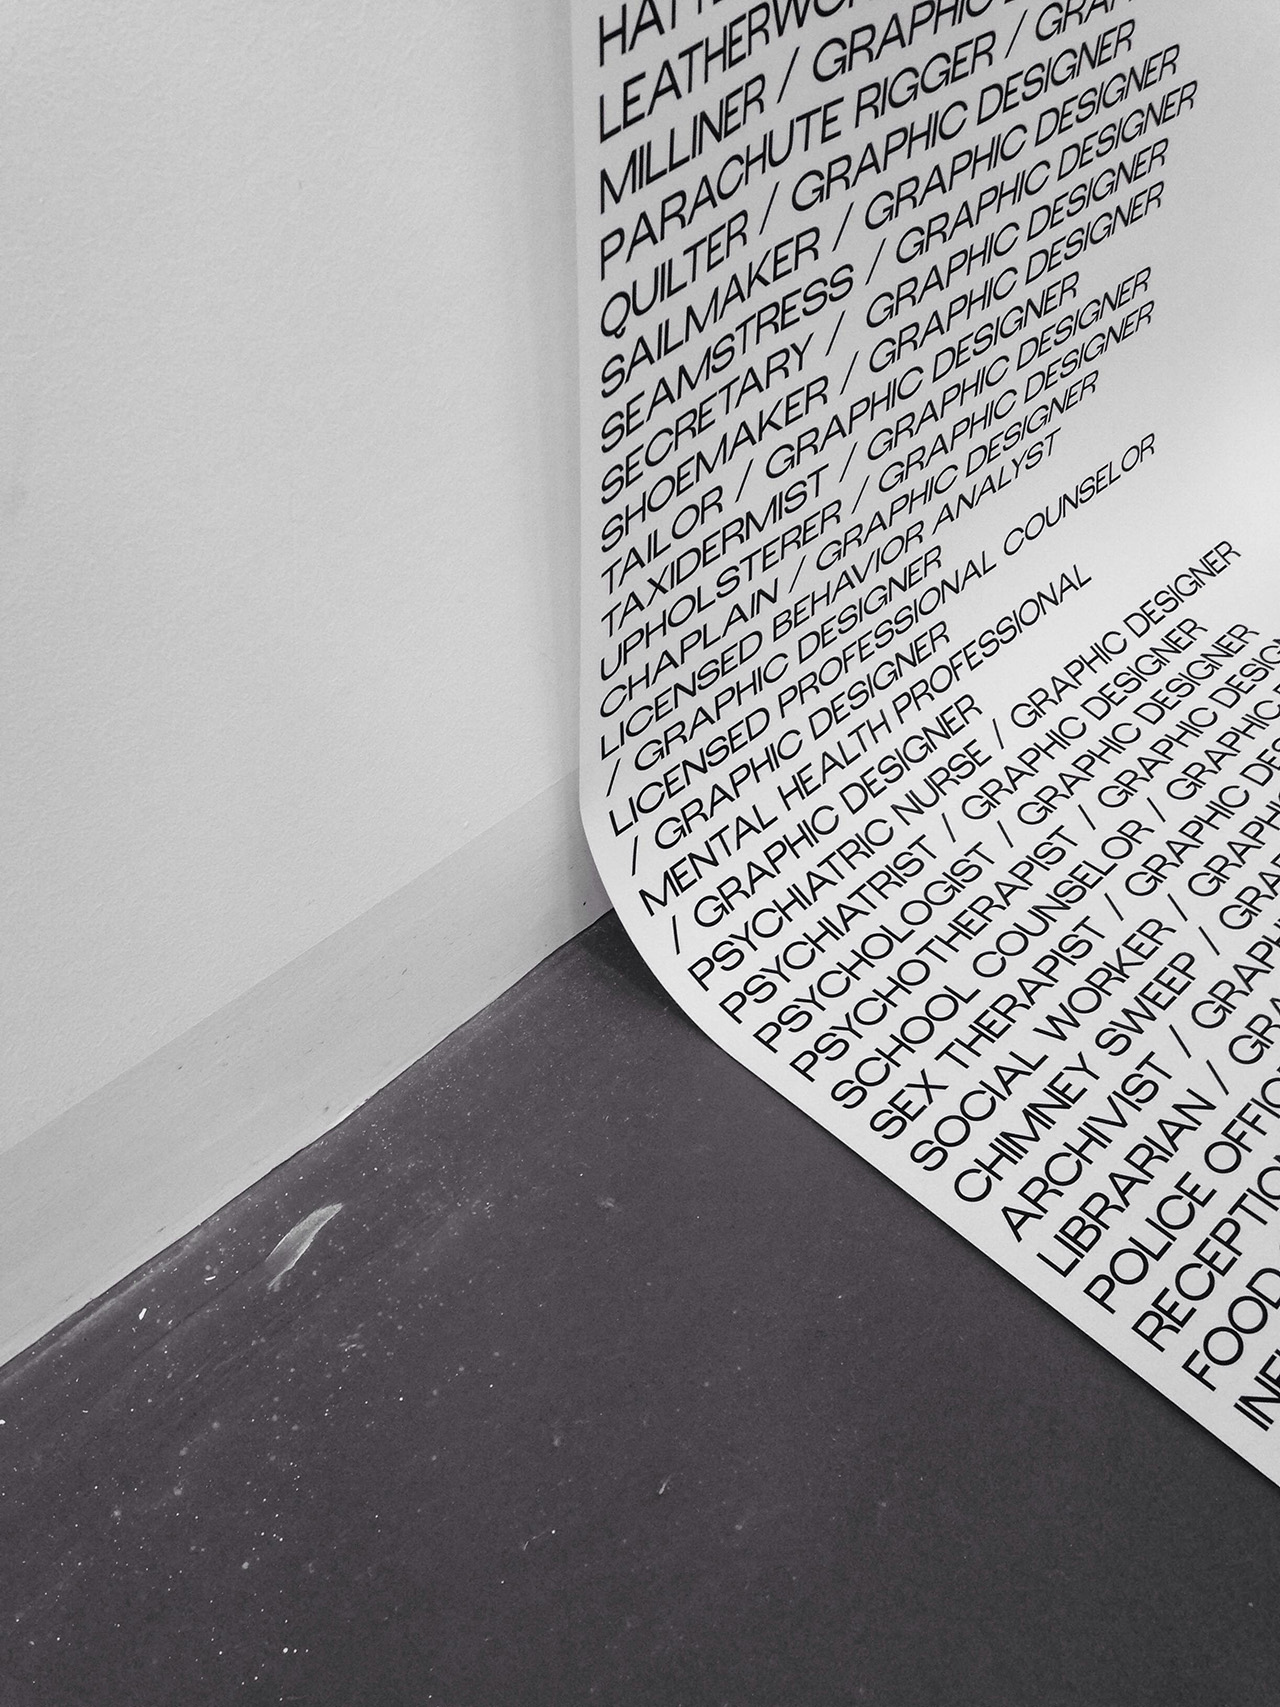 MILLINER / GRAPHIC
PARACHUTE RIGGER /
QUILTER / GRAPHIC DESIGNER
SAILMAKER / GRAPHIC DESIGNER
SEAMSTRESS / GRAPHIC DESIGNER
SECRETARY / GRAPHIC DESIGNER
SHOEMAKER / GRAPHIC DESIGNER
TAILOR / GRAPHIC DESIGNER
TAXIDERMIST / GRAPHIC DESIGNER
UPHOLSTERER / GRAPHIC DESIGNER
CHAPLAIN / GRAPHIC DESIGNER
LICENSED BEHAVIOR ANALYST
/ GRAPHIC DESIGNER
LICENSED PROFESSIONAL COUNSELOR
/ GRAPHIC DESIGNER
MENTAL HEALTH PROFESSIONAL
/ GRAPHIC DESIGNER
PSYCHIATRIC NURSE / GRAPHIC DESIGNER
PSYCHIATRIST / GRAPHIC DESIGNER
PSYCHOLOGIST / GRAPHIC DESIGNER
PSYCHOTHERAPIST / GRAPHIC
SCHOOL COUNSELOR /
SEX THERAPIST / GRAPHIC
SOCIAL WORKER /
CHIMNEY SWEEP /
ARCHIVIST /
LIBRARIAN /
POLICE
FOOD